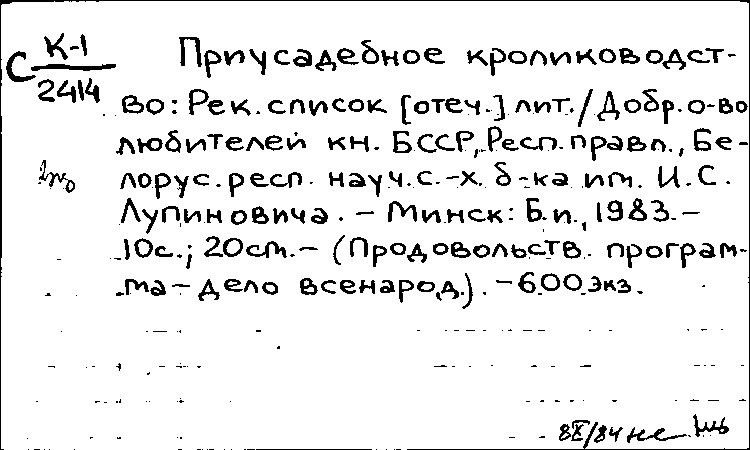 С К-1/2414
Приусадебное кролиководст-
во: Рек. список [отеч.] лит./Добр. о-во
любителей кн. БССР, Респ. правл., Бе-
лорус. респ. науч. с.-х. б-ка им. И.С.
Лупиновича. – Минск: Б.и., 1983. –
10с.; 20см. – (Продовольств. програм-
ма – дело всенарод.). – 600 экз.
8X/84